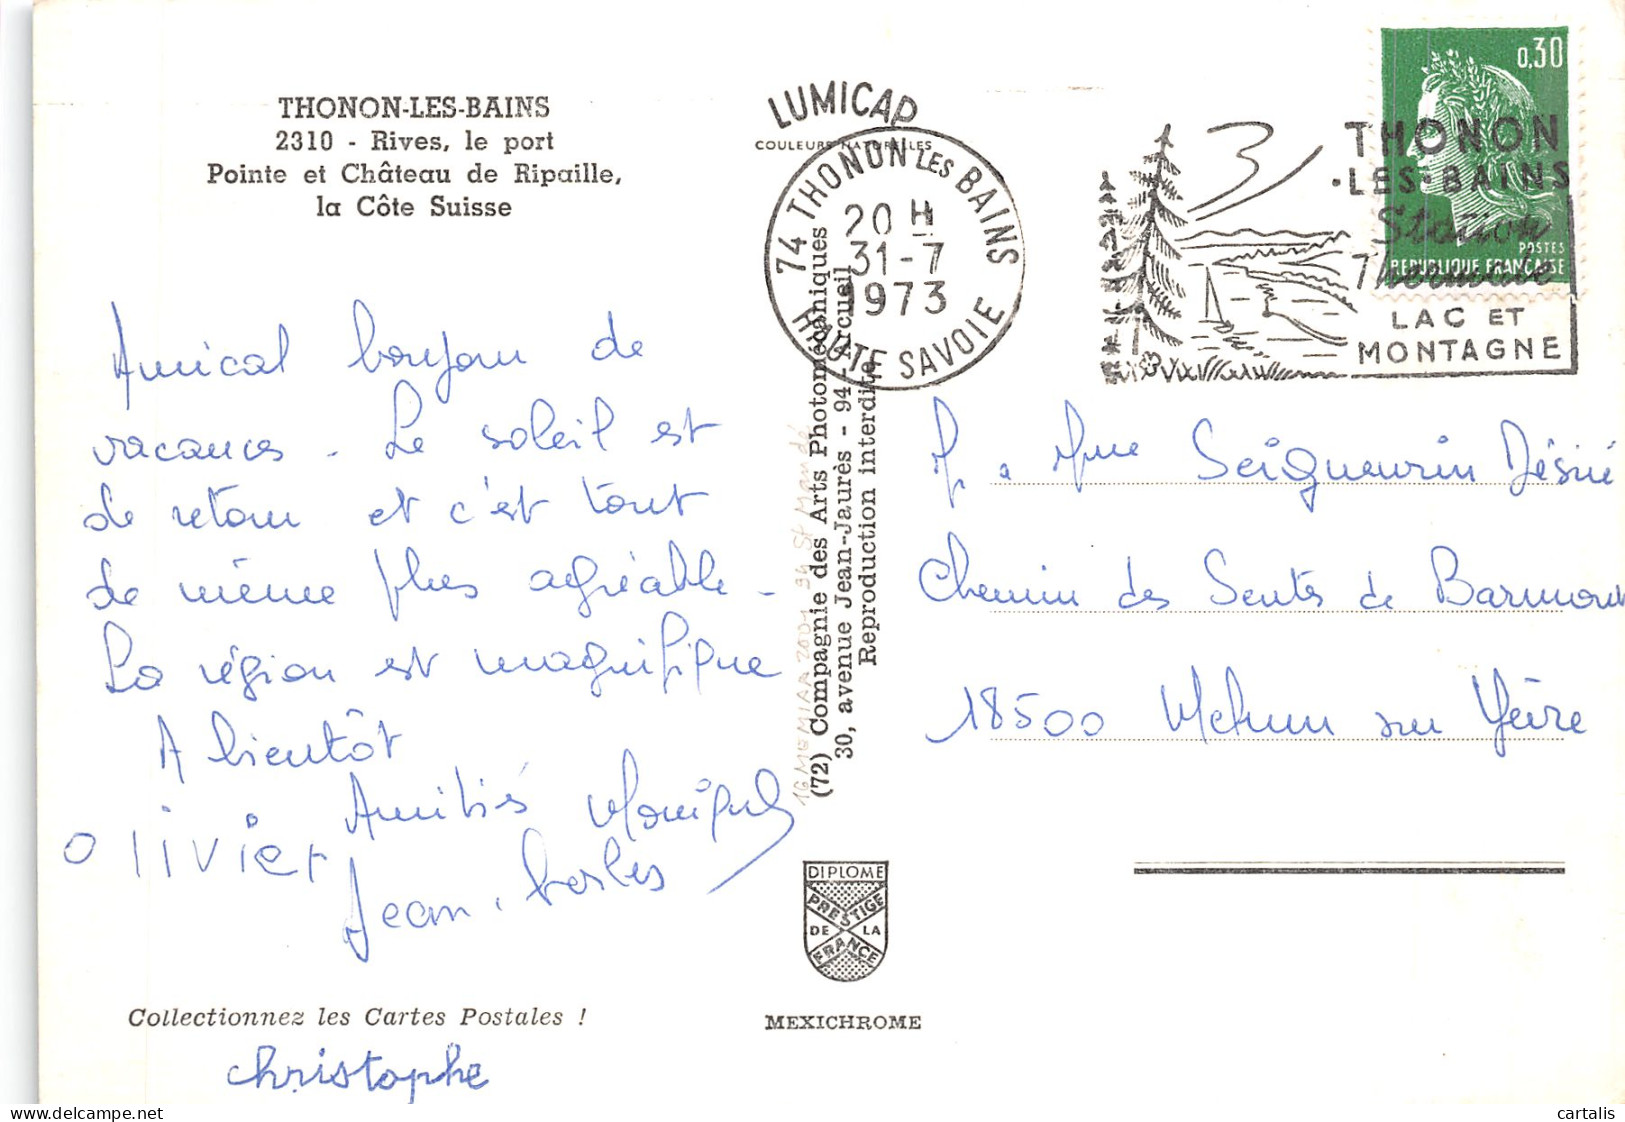 THONON-LES-BAINS
2310 - Rives, le port
Pointe et Château de Ripaille,
la Côte Suisse
Amical bonjour de
vacances - Le soleil est
de retour et c'est tout
de même plus agréable -
La région est magnifique
A bientôt
Amitiés Monique
Olivier
Jean-Charles
Collectionnez les Cartes Postales !
christophe
LUMICAP
COULEURS NATURELLES
74 THONON LES BAINS
20 H
31-7
1973
HAUTE SAVOIE
(72) Compagnie des Arts Photomécaniques
30, avenue Jean-Jaurès - 94-Arcueil
Reproduction interdite
DIPLOME
PRESTIGE
DE LA
FRANCE
MEXICHROME
0,30
POSTES
REPUBLIQUE FRANÇAISE
THONON
·LES·BAINS
Station
Thermale
LAC ET
MONTAGNE
M. & Mme Seigneurin Désiré
Chemin des Sentes de Barmont
18500 Mehun sur Yèvre
delcampe.net
cartalis